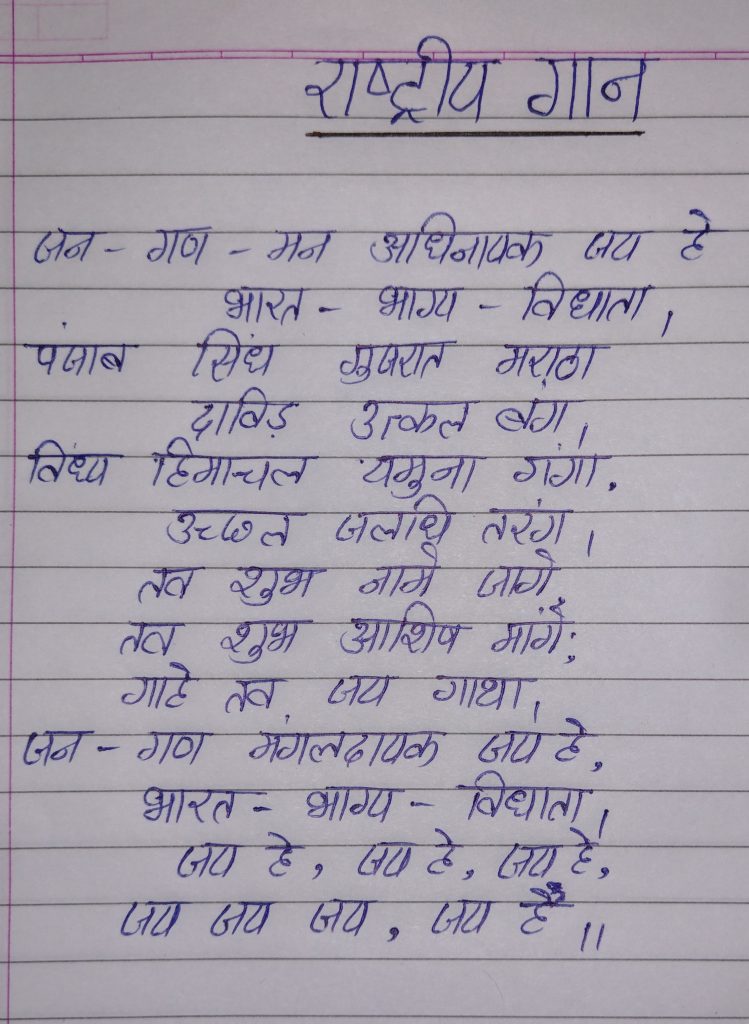 राष्ट्रीय गान
जन - गण - मन अधिनायक जय हे
भारत - भाग्य - विधाता ,
पंजाब सिंध गुजरात मराठा
दाविड़ उत्कल बंग ,
विंध्य हिमाचल यमुना गंगा ,
उच्छल जलधि तरंग ,
तव शुभ नामे जागे
तव शुभ आशिष मांगे ;
गाहे तव जय गाथा ,
जन - गण मंगलदायक जय हे ,
भारत - भाग्य - विधाता ,
जय हे , जय हे , जय हे ,
जय जय जय , जय हे ॥